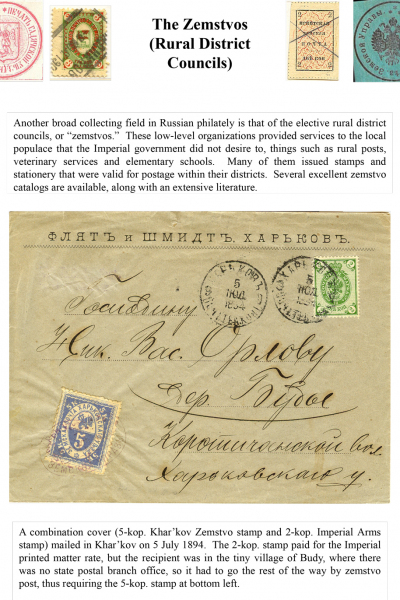 The Zemstvos
(Rural District
Councils)
Another broad collecting field in Russian philately is that of the elective rural district
councils, or “zemstvos.” These low-level organizations provided services to the local
populace that the Imperial government did not desire to, things such as rural posts,
veterinary services and elementary schools. Many of them issued stamps and
stationery that were valid for postage within their districts. Several excellent zemstvo
catalogs are available, along with an extensive literature.
ФЛЯТЪ и ШМИДТЪ. ХАРЬКОВЪ.
5
ІЮЛ.
1894
Господину
Ник. Вас. Орлову
Дер. Буды
5
Харьковскаго у.
A combination cover (5-kop. Khar’kov Zemstvo stamp and 2-kop. Imperial Arms
stamp) mailed in Khar’kov on 5 July 1894. The 2-kop. stamp paid for the Imperial
printed matter rate, but the recipient was in the tiny village of Budy, where there
was no state postal branch office, so it had to go the rest of the way by zemstvo
post, thus requiring the 5-kop. stamp at bottom left.